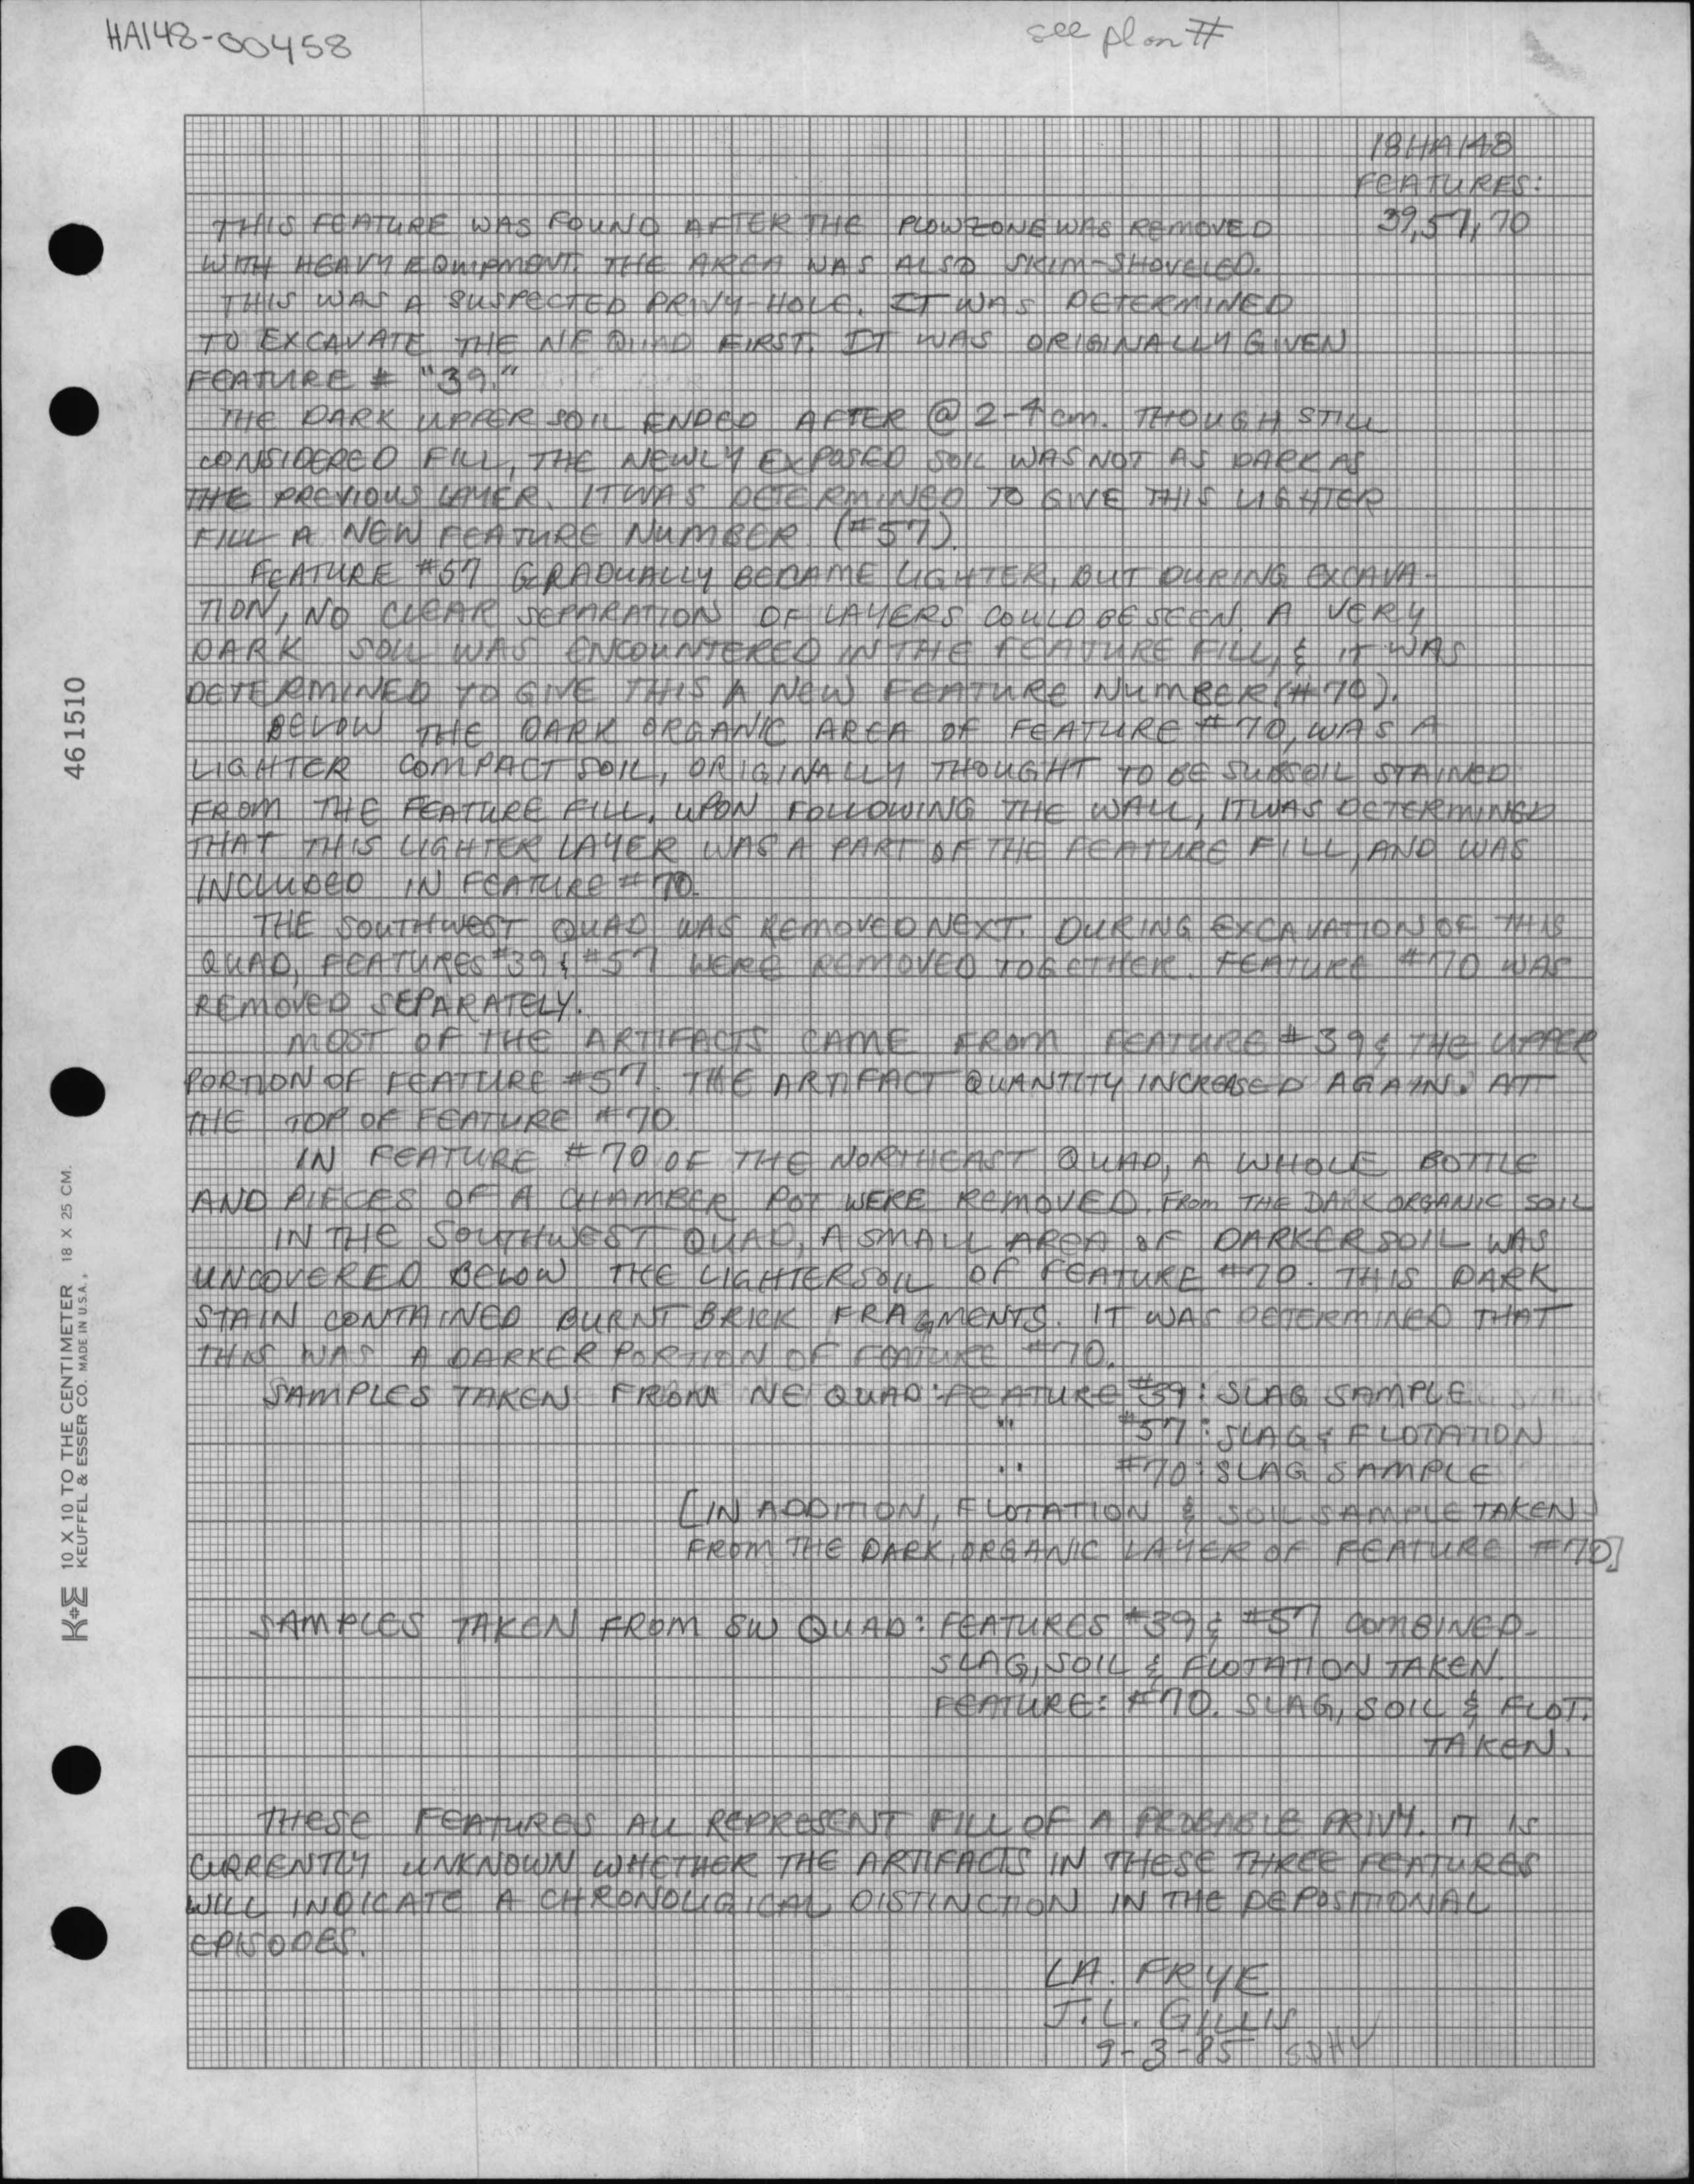 HA148-00458
see plan #
18HA148
FEATURES:
39,57,70
THIS FEATURE WAS FOUND AFTER THE PLOWZONE WAS REMOVED
WITH HEAVY EQUIPMENT. THE AREA WAS ALSO SKIM-SHOVELED.
THIS WAS A SUSPECTED PRIVY-HOLE. IT WAS DETERMINED
TO EXCAVATE THE NE QUAD FIRST. IT WAS ORIGINALLY GIVEN
FEATURE # "39."
THE DARK UPPER SOIL ENDED AFTER @ 2-4 cm. THOUGH STILL
CONSIDERED FILL, THE NEWLY EXPOSED SOIL WAS NOT AS DARK AS
THE PREVIOUS LAYER. IT WAS DETERMINED TO GIVE THIS LIGHTER
FILL A NEW FEATURE NUMBER (#57).
FEATURE #57 GRADUALLY BECAME LIGHTER, BUT DURING EXCAVA-
TION, NO CLEAR SEPARATION OF LAYERS COULD BE SEEN. A VERY
DARK SOIL WAS ENCOUNTERED IN THE FEATURE FILL, & IT WAS
DETERMINED TO GIVE THIS A NEW FEATURE NUMBER (#70).
BELOW THE DARK ORGANIC AREA OF FEATURE #70, WAS A
LIGHTER COMPACT SOIL, ORIGINALLY THOUGHT TO BE SUBSOIL STAINED
FROM THE FEATURE FILL. UPON FOLLOWING THE WALL, IT WAS DETERMINED
THAT THIS LIGHTER LAYER WAS A PART OF THE FEATURE FILL, AND WAS
INCLUDED IN FEATURE #70.
THE SOUTHWEST QUAD WAS REMOVED NEXT. DURING EXCAVATION OF THIS
QUAD, FEATURES #39 & #57 WERE REMOVED TOGETHER. FEATURE #70 WAS
REMOVED SEPARATELY.
MOST OF THE ARTIFACTS CAME FROM FEATURE #39 & THE UPPER
PORTION OF FEATURE #57. THE ARTIFACT QUANTITY INCREASED AGAIN. AT
THE TOP OF FEATURE #70.
IN FEATURE #70 OF THE NORTHEAST QUAD, A WHOLE BOTTLE
AND PIECES OF A CHAMBER POT WERE REMOVED. FROM THE DARK ORGANIC SOIL
IN THE SOUTHWEST QUAD, A SMALL AREA OF DARKER SOIL WAS
UNCOVERED BELOW THE LIGHTER SOIL OF FEATURE #70. THIS DARK
STAIN CONTAINED BURNT BRICK FRAGMENTS. IT WAS DETERMINED THAT
THIS WAS A DARKER PORTION OF FEATURE #70.
SAMPLES TAKEN FROM NE QUAD: FEATURE #39: SLAG SAMPLE
" #57: SLAG & FLOTATION
" #70: SLAG SAMPLE
[IN ADDITION, FLOTATION & SOIL SAMPLE TAKEN
FROM THE DARK ORGANIC LAYER OF FEATURE #70]
SAMPLES TAKEN FROM SW QUAD: FEATURES #39 & #57 COMBINED-
SLAG, SOIL & FLOTATION TAKEN.
FEATURE: #70. SLAG, SOIL & FLOT.
TAKEN.
THESE FEATURES ALL REPRESENT FILL OF A PROBABLE PRIVY. IT IS
CURRENTLY UNKNOWN WHETHER THE ARTIFACTS IN THESE THREE FEATURES
WILL INDICATE A CHRONOLIGICAL DISTINCTION IN THE DEPOSITIONAL
EPISODES.
L.A. FRYE
J.L. GILLIS
9-3-85
461510
K+E 10 X 10 TO THE CENTIMETER 18 X 25 CM.
KEUFFEL & ESSER CO. MADE IN U.S.A.